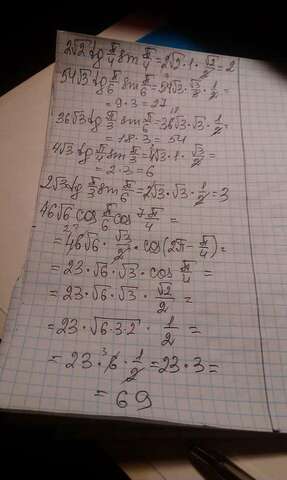 2√2 tg π/4 sin π/4 = 2√2 · 1 · √2/2 = 2
54√3 tg π/6 sin π/6 = 54√3 · √3/3 · 1/2 =
= 9 · 3 = 27
36√3 tg π/3 sin π/6 = 36√3 · √3 · 1/2 =
= 18 · 3 = 54
4√3 tg π/4 sin π/3 = 4√3 · 1 · √3/2 =
= 2 · 3 = 6
2√3 tg π/3 sin π/6 = 2√3 · √3 · 1/2 = 3
46√6 cos π/6 cos 7π/4 =
= 46√6 · √3/2 · cos(2π - π/4) =
= 23 · √6 · √3 · cos π/4 =
= 23 · √6 · √3 · √2/2 =
= 23 · √6·3·2 · 1/2 =
= 23 · 6 · 1/2 = 23 · 3 =
= 69